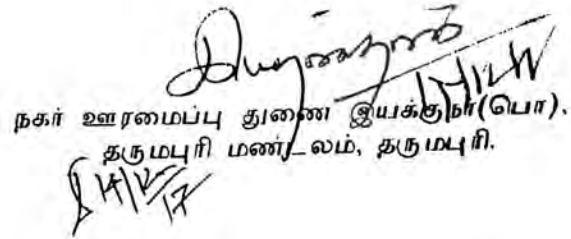 நகர் ஊரமைப்பு துணை இயக்குநர்(பொ).
தருமபுரி மண்டலம், தருமபுரி.
14/12/17